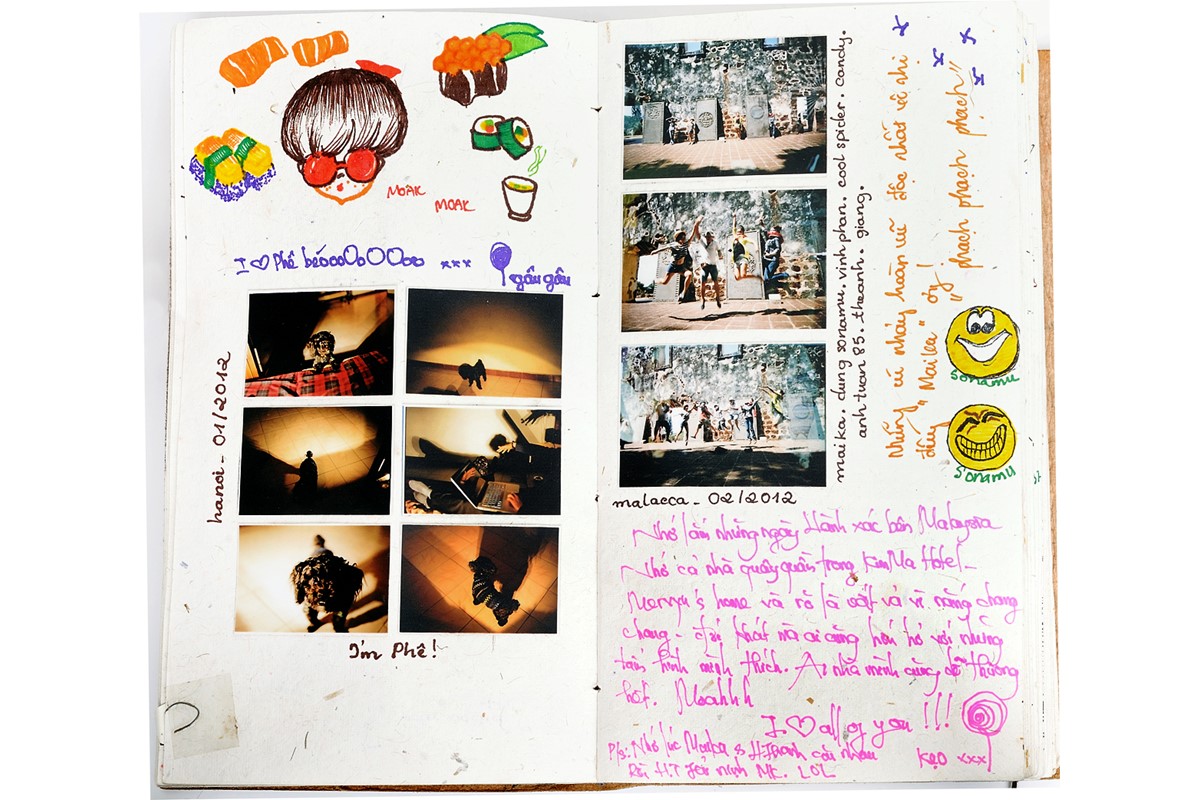 MOAK
MOAK
I ♡ Phê béoooOoOOOoo xxx
gấu gâu
hanoi - 01/2012
I'm Phê!
maika. dung sonamu. vinh phan. cool spider. candy.
anh tuan 85. theanh. giang.
Những cú nhảy hoàn vũ độc nhất vô nhị
đây "Maika" ơi!
"phạch phạch phạch"
sonamu
sonamu
malacca - 02/2012
Nhớ lắm những ngày Hành xác bên Malaysia
Nhớ cả nhà quây quần trong KimMa Hotel -
Mervyn's home và rồ là vì nắng chang
chang - đói khát mà ai cũng hớn hở với những
tấm hình mình thích. Ai nhà mình cũng dễ thương
hết. Moahhh
I ♡ all of you !!!
P/s: Nhớ lúc Maika & H.Thanh cãi nhau
LOL
KẸO xxx